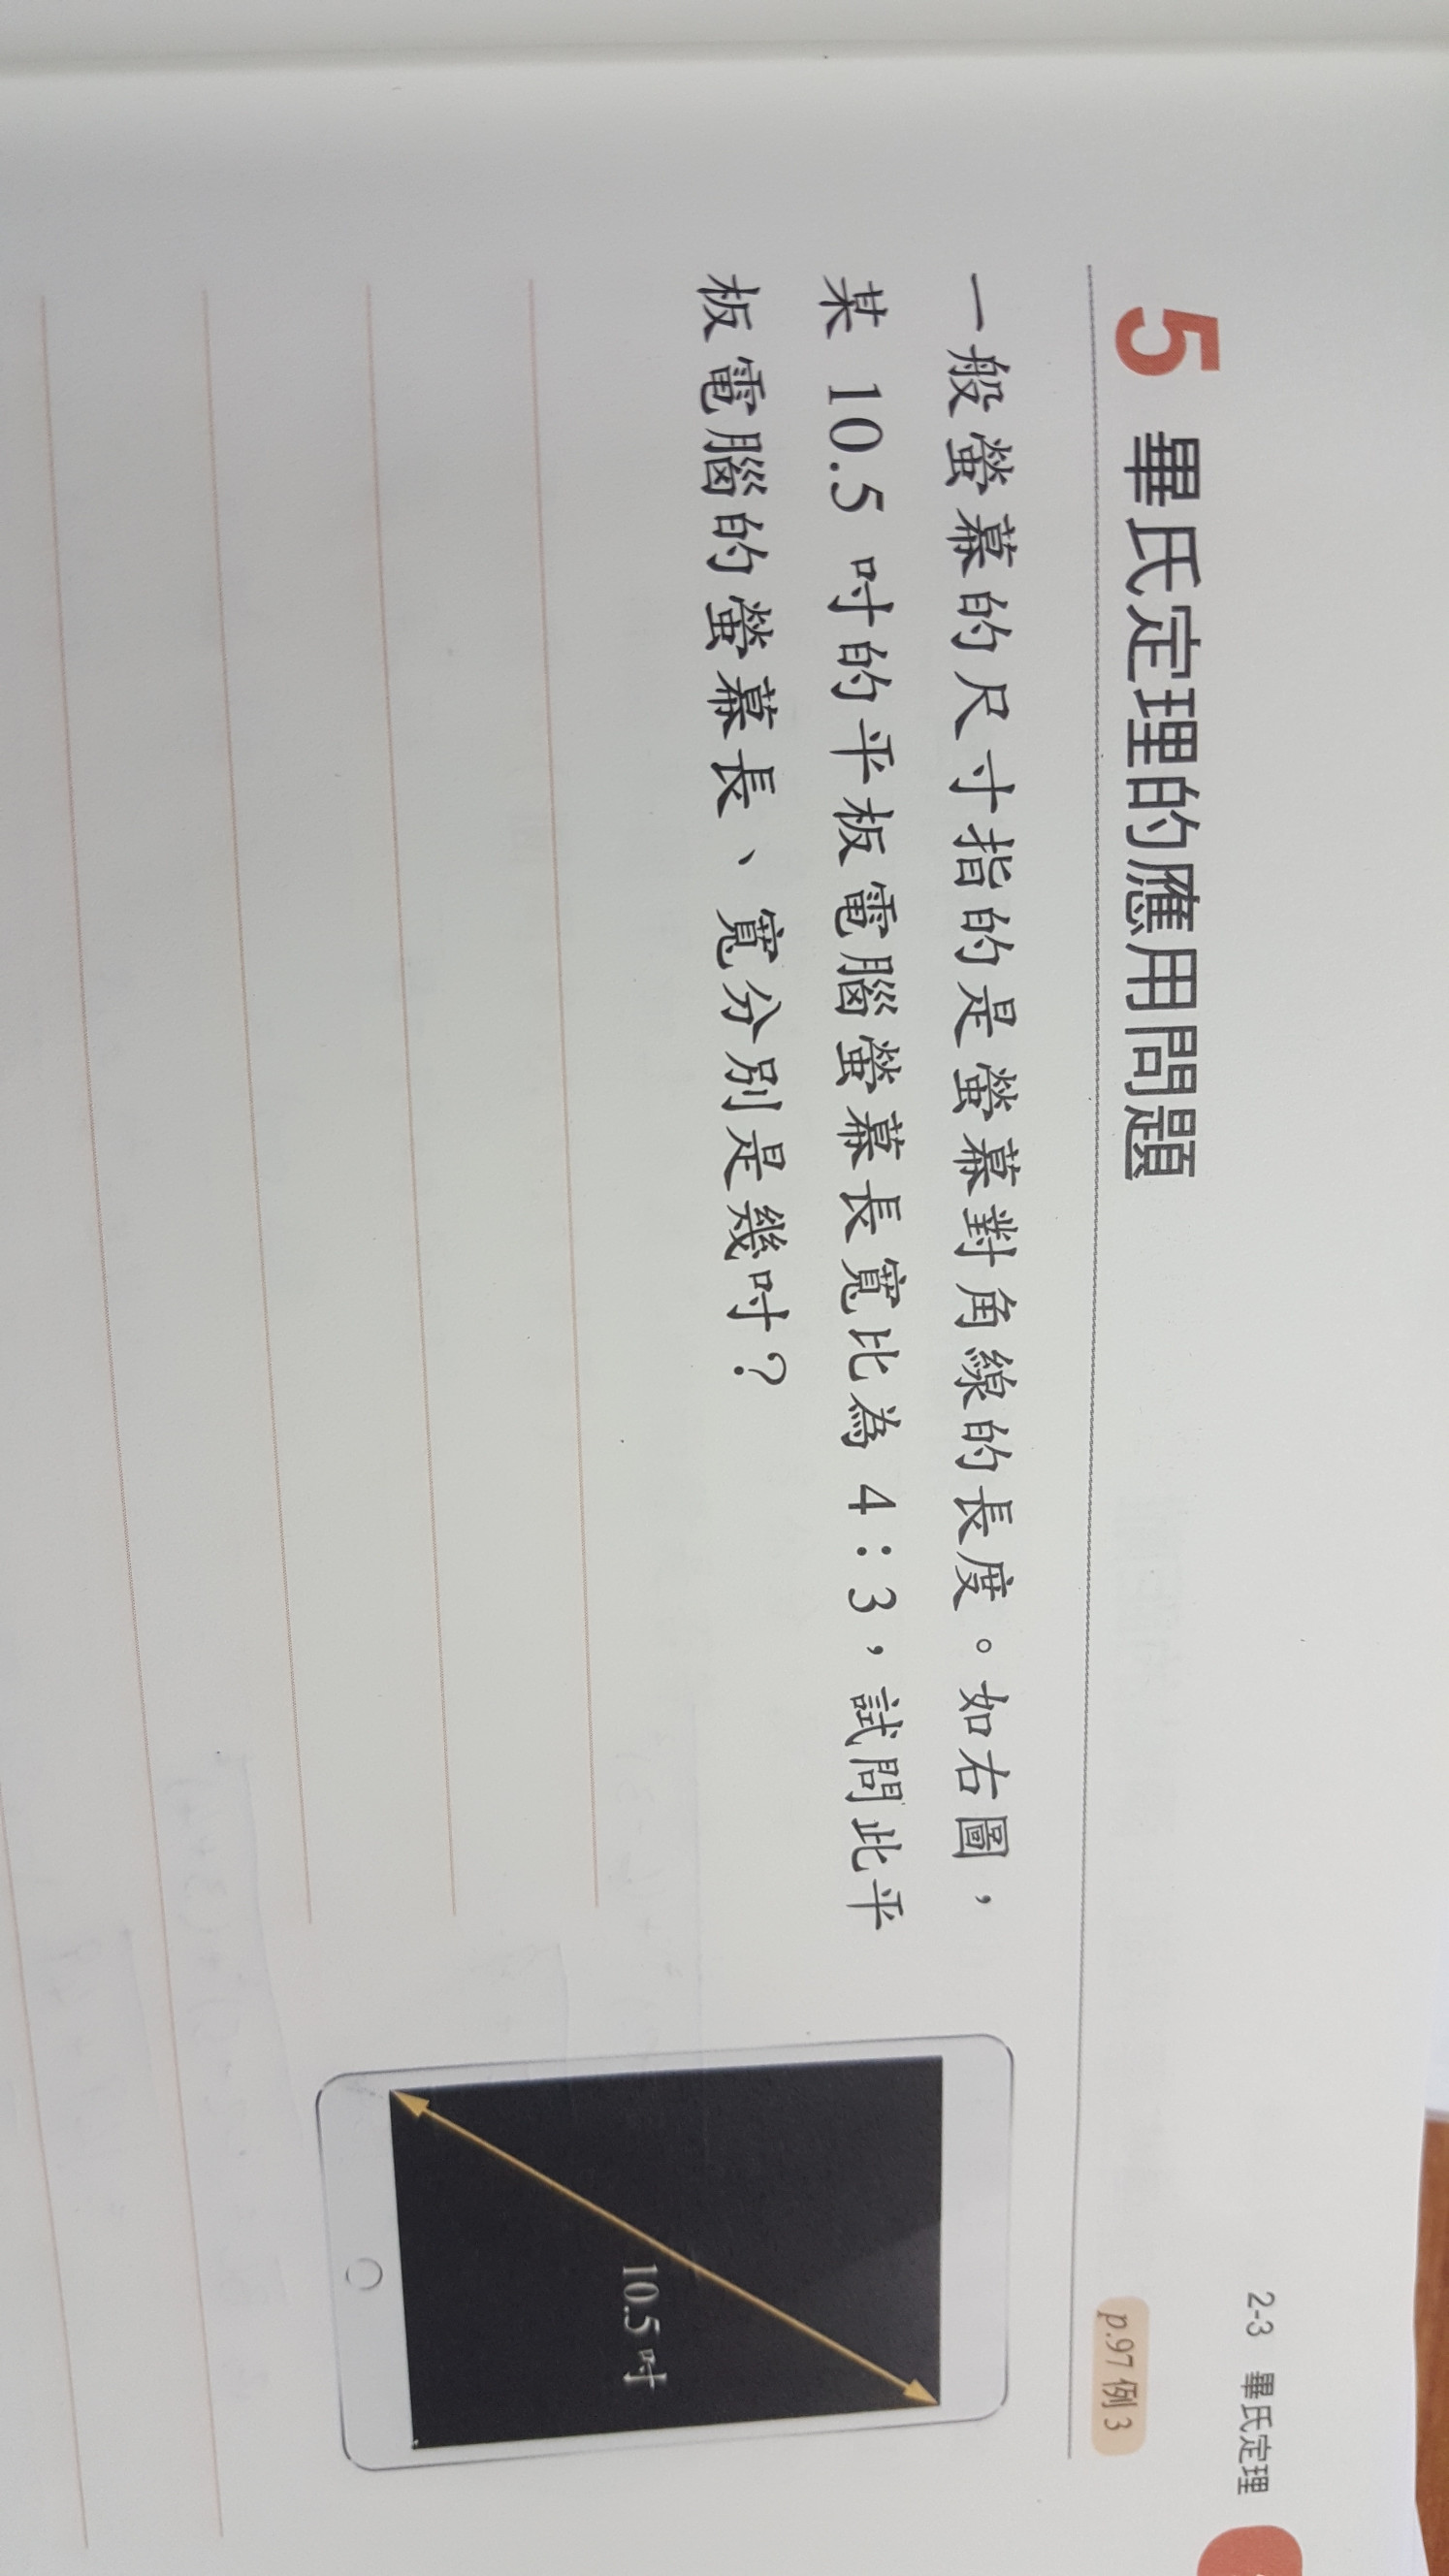 2-3 畢氏定理
5 畢氏定理的應用問題
p.97 例 3
一般螢幕的尺寸指的是螢幕對角線的長度。如右圖，
某 10.5 吋的平板電腦螢幕長寬比為 4：3，試問此平
板電腦的螢幕長、寬分別是幾吋？
10.5 吋